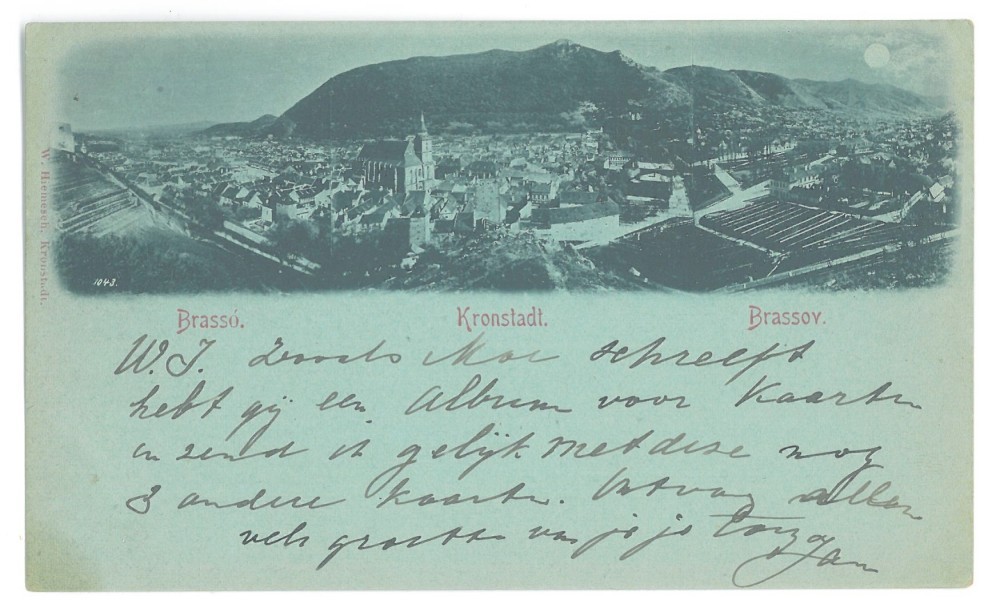 W. Hiemesch, Kronstadt.
1043.
Brassó. Kronstadt. Brassov.
W.J. Zooals Moe schreeft
hebt gij een Album voor Kaarten
en zend ik gelijk met deze nog
3 andere kaarten. Ontvang allen
vele groetten van je je
Jan